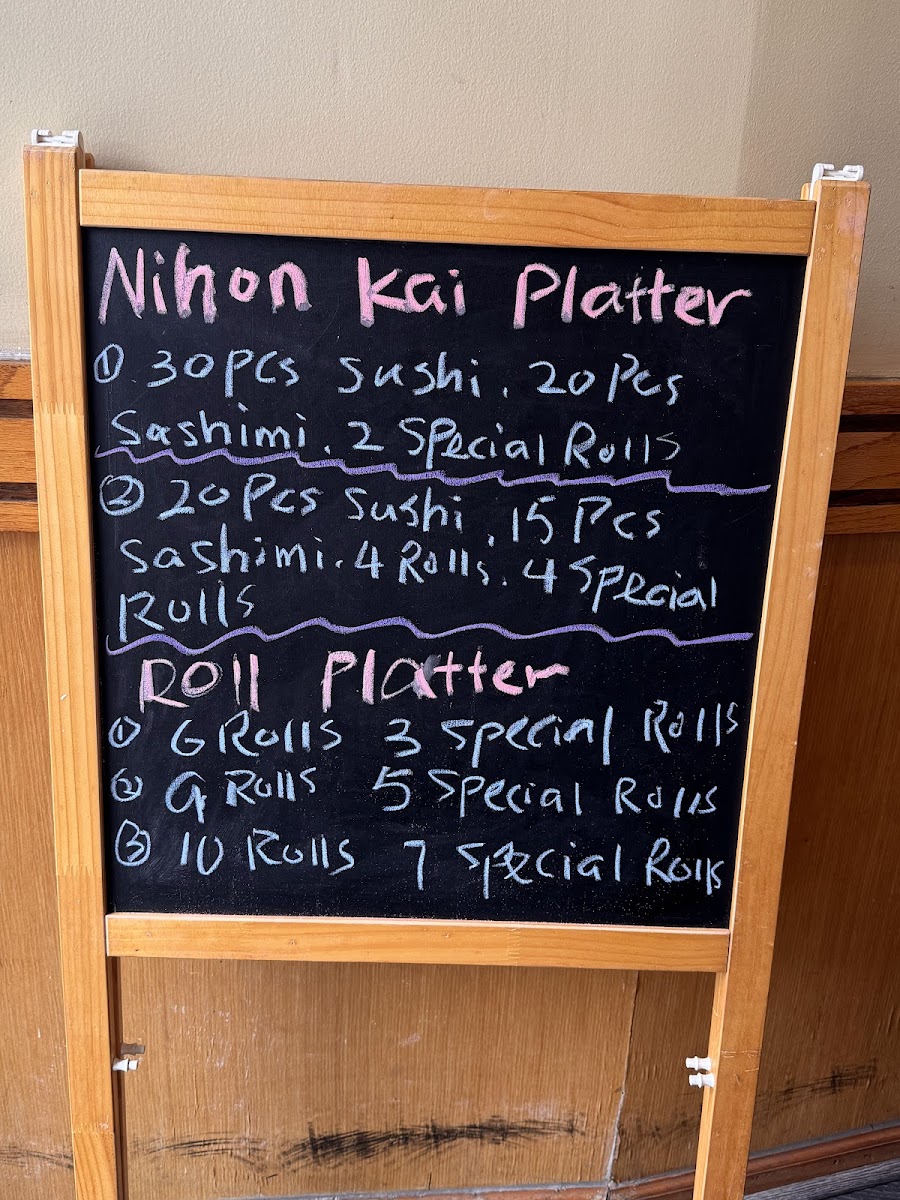 Nihon Kai Platter
① 30 Pcs Sushi. 20 Pcs
Sashimi. 2 Special Rolls
② 20 Pcs Sushi. 15 Pcs
Sashimi. 4 Rolls. 4 Special
Rolls
Roll Platter
① 6 Rolls 3 Special Rolls
② 9 Rolls 5 Special Rolls
③ 10 Rolls 7 Special Rolls